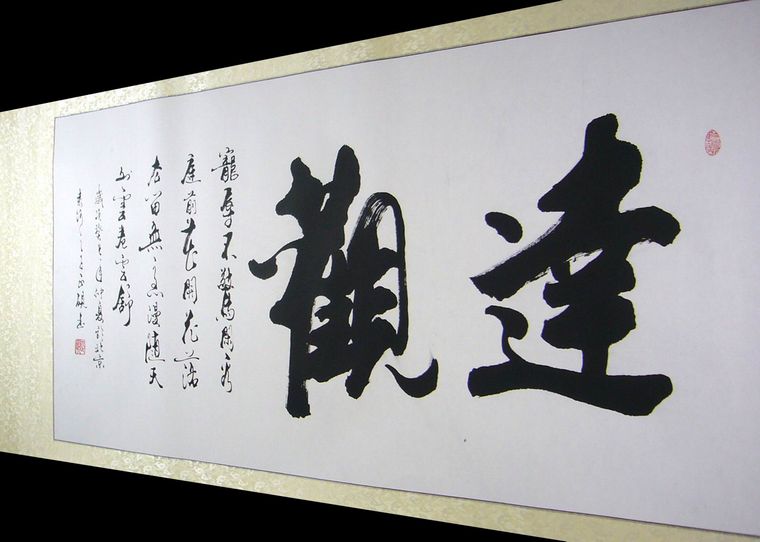 達觀
寵辱不驚閑看
庭前花開花落
去留無意漫隨天
外雲卷雲舒
歲次癸年仲夏於北京
書